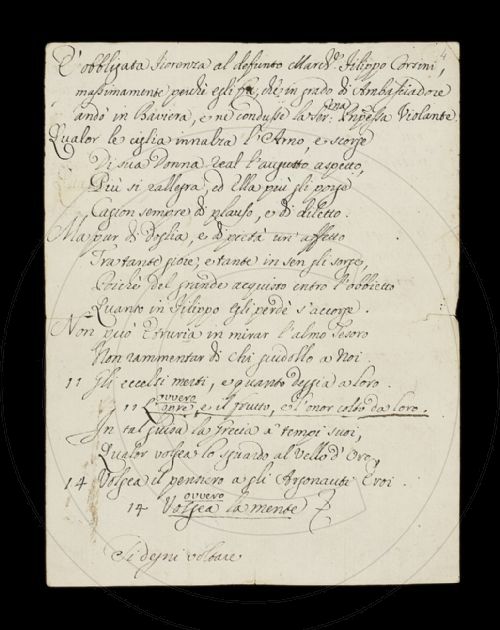 E' obbligata Fiorenza al defunto March.e Filippo Corsini,
massimamente perchè egli fu, che in grado di Ambasciadore
andò in Baviera, e ne condusse la Ser:ma Prñpessa Violante.
Qualor le ciglia innalza l'Arno, e scorge
Di sua Donna real l'augusto aspetto,
Più si rallegra, ed Ella più gli porge
Cagion sempre di plauso, e di diletto.
Ma pur di doglia, e di pietà un' affetto
Tra tante gioie, e tante in sen gli sorge,
Poichè del grande acquisto entro l'obbietto
Quanto in Filippo Egli perdè s'accorge.
Non può Etruria in mirar l'almo Tesoro
Non rammentar di chi guidollo a Noi.
11 Gli eccelsi meriti, e quanto deggia a loro.
ovvero
11 L'opre, e il frutto, e l'onor colto da loro.
In tal guisa la Grecia a' tempi suoi,
Qualor volgea lo sguardo al Vello d'Oro,
14 Volgea il pensiero a gli Argonauti Eroi.
ovvero
14 Volgea la mente
Si degni voltare